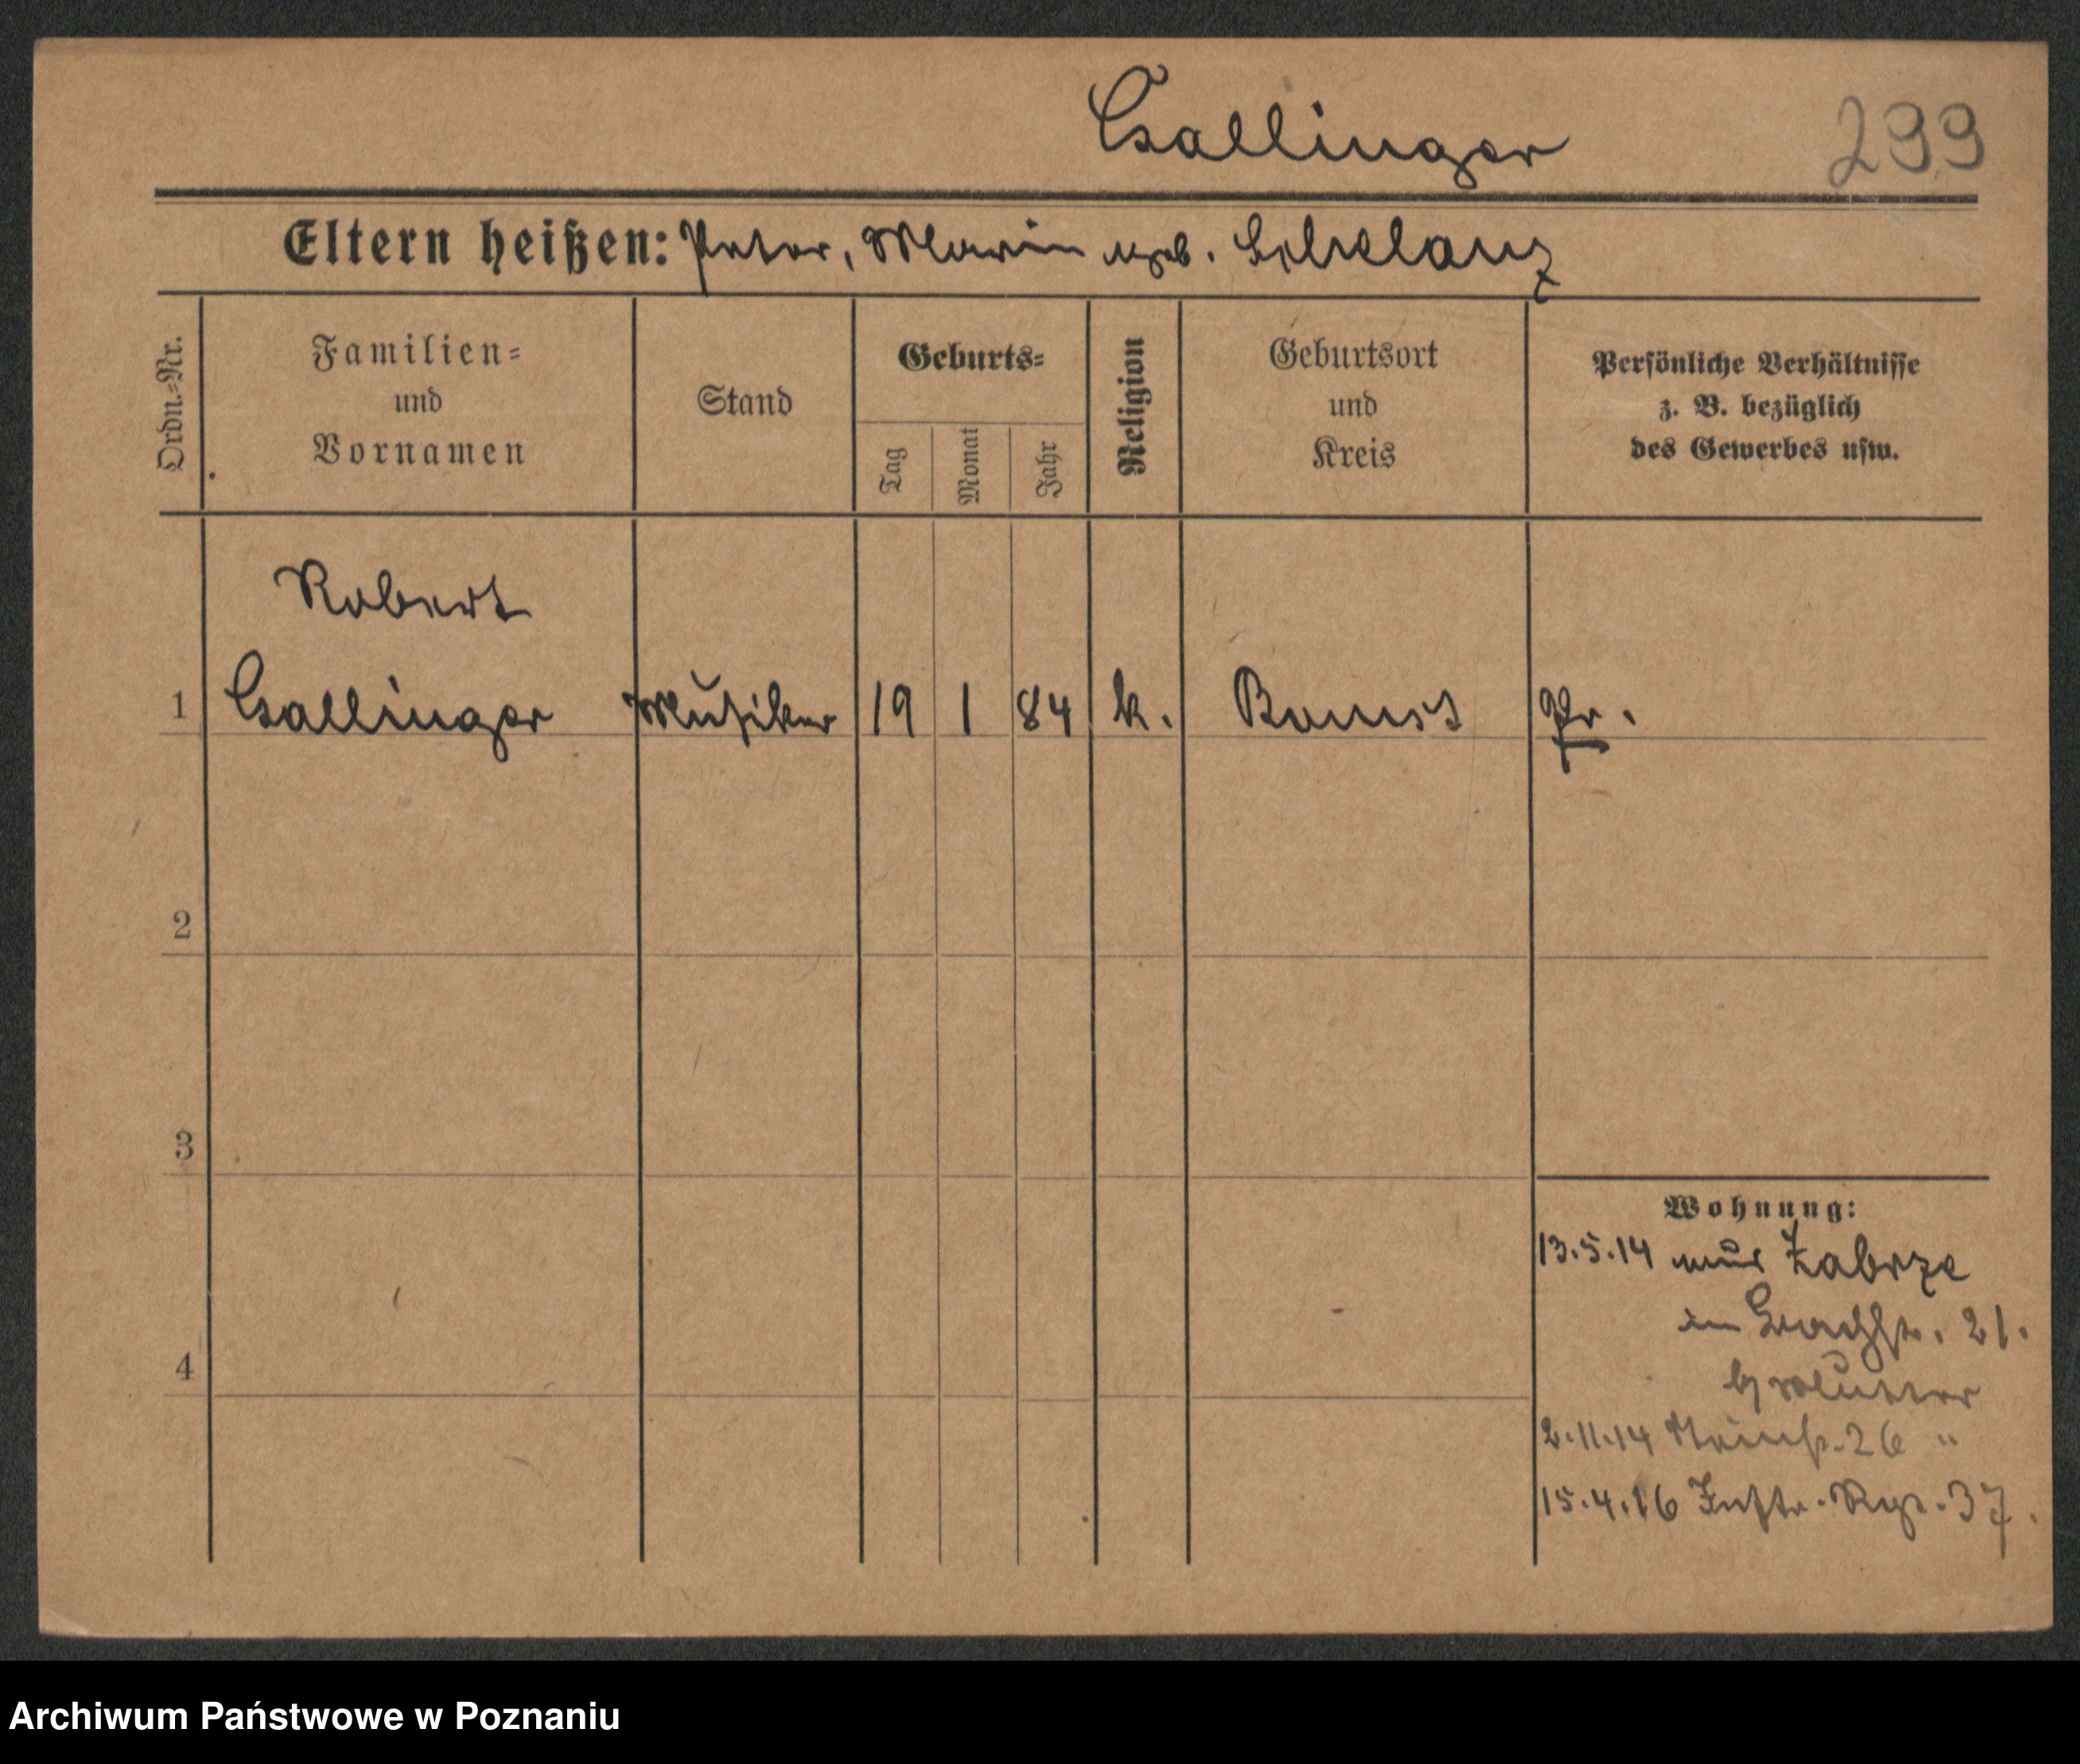 Csallinger
299
Eltern heißen: Peter, Marie geb.
Ordn.-Nr.
Familien=
und
Vornamen
Stand
Geburts=
Tag
Monat
Jahr
Religion
Geburtsort
und
Kreis
Persönliche Verhältnisse
z. B. bezüglich
des Gewerbes usw.
Robert
1 Csallinger Musiker 19 1 84 k. Pr.
2
3
4
Wohnung:
13.5.14 aus Zabrze
21.
b/ Mutter
2.11.14 26 "
15.4.16 Inftr. Rgt. 37.
Archiwum Państwowe w Poznaniu